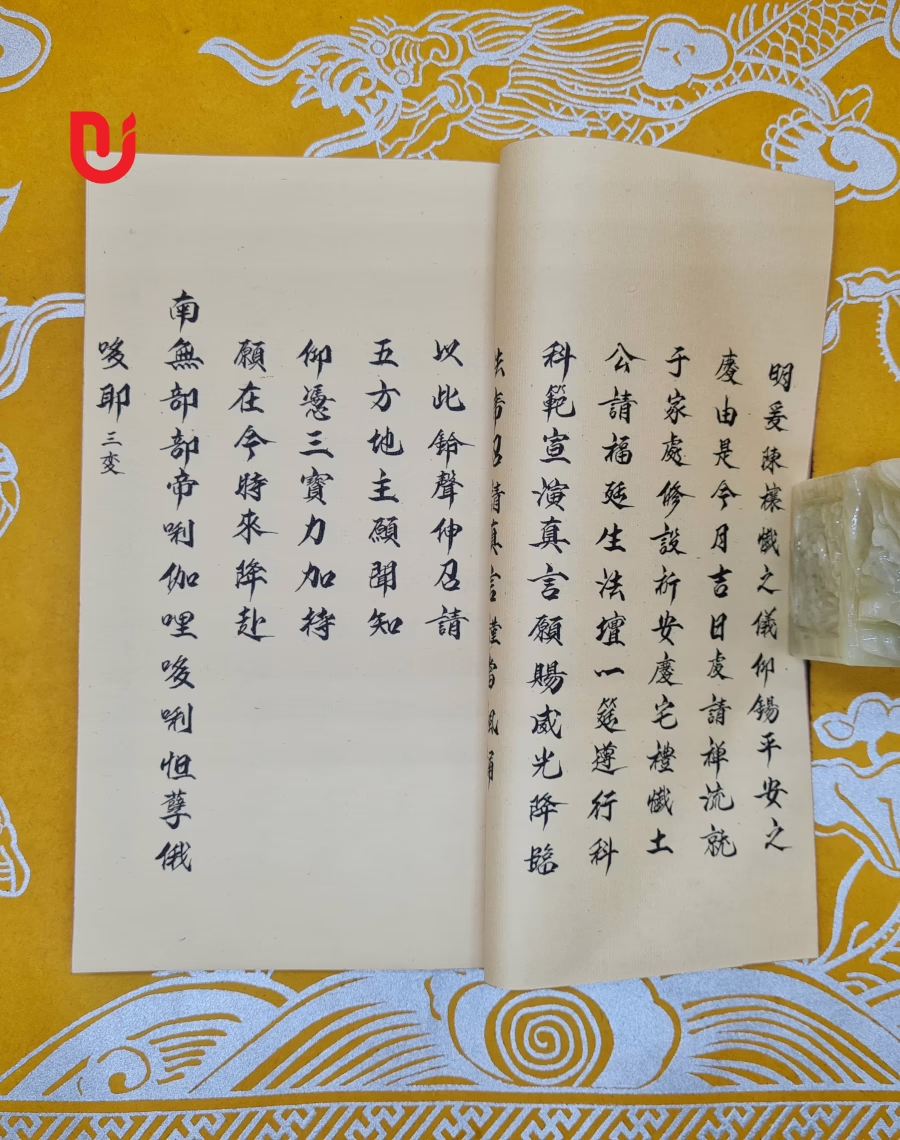 明爰陳禳懺之儀仰錫平安之
慶由是今月吉日虔請禅流就
于家處修設祈安慶宅禮懺土
公請福延生法壇一筵遵行科
科範宣演真言願賜威光降臨
召請真言謹當
以此鈴聲伸召請
五方地主願聞知
仰憑三寳力加持
願在今時來降赴
南無部部帝唎伽哩哆唎怛孽俄
哆耶三変